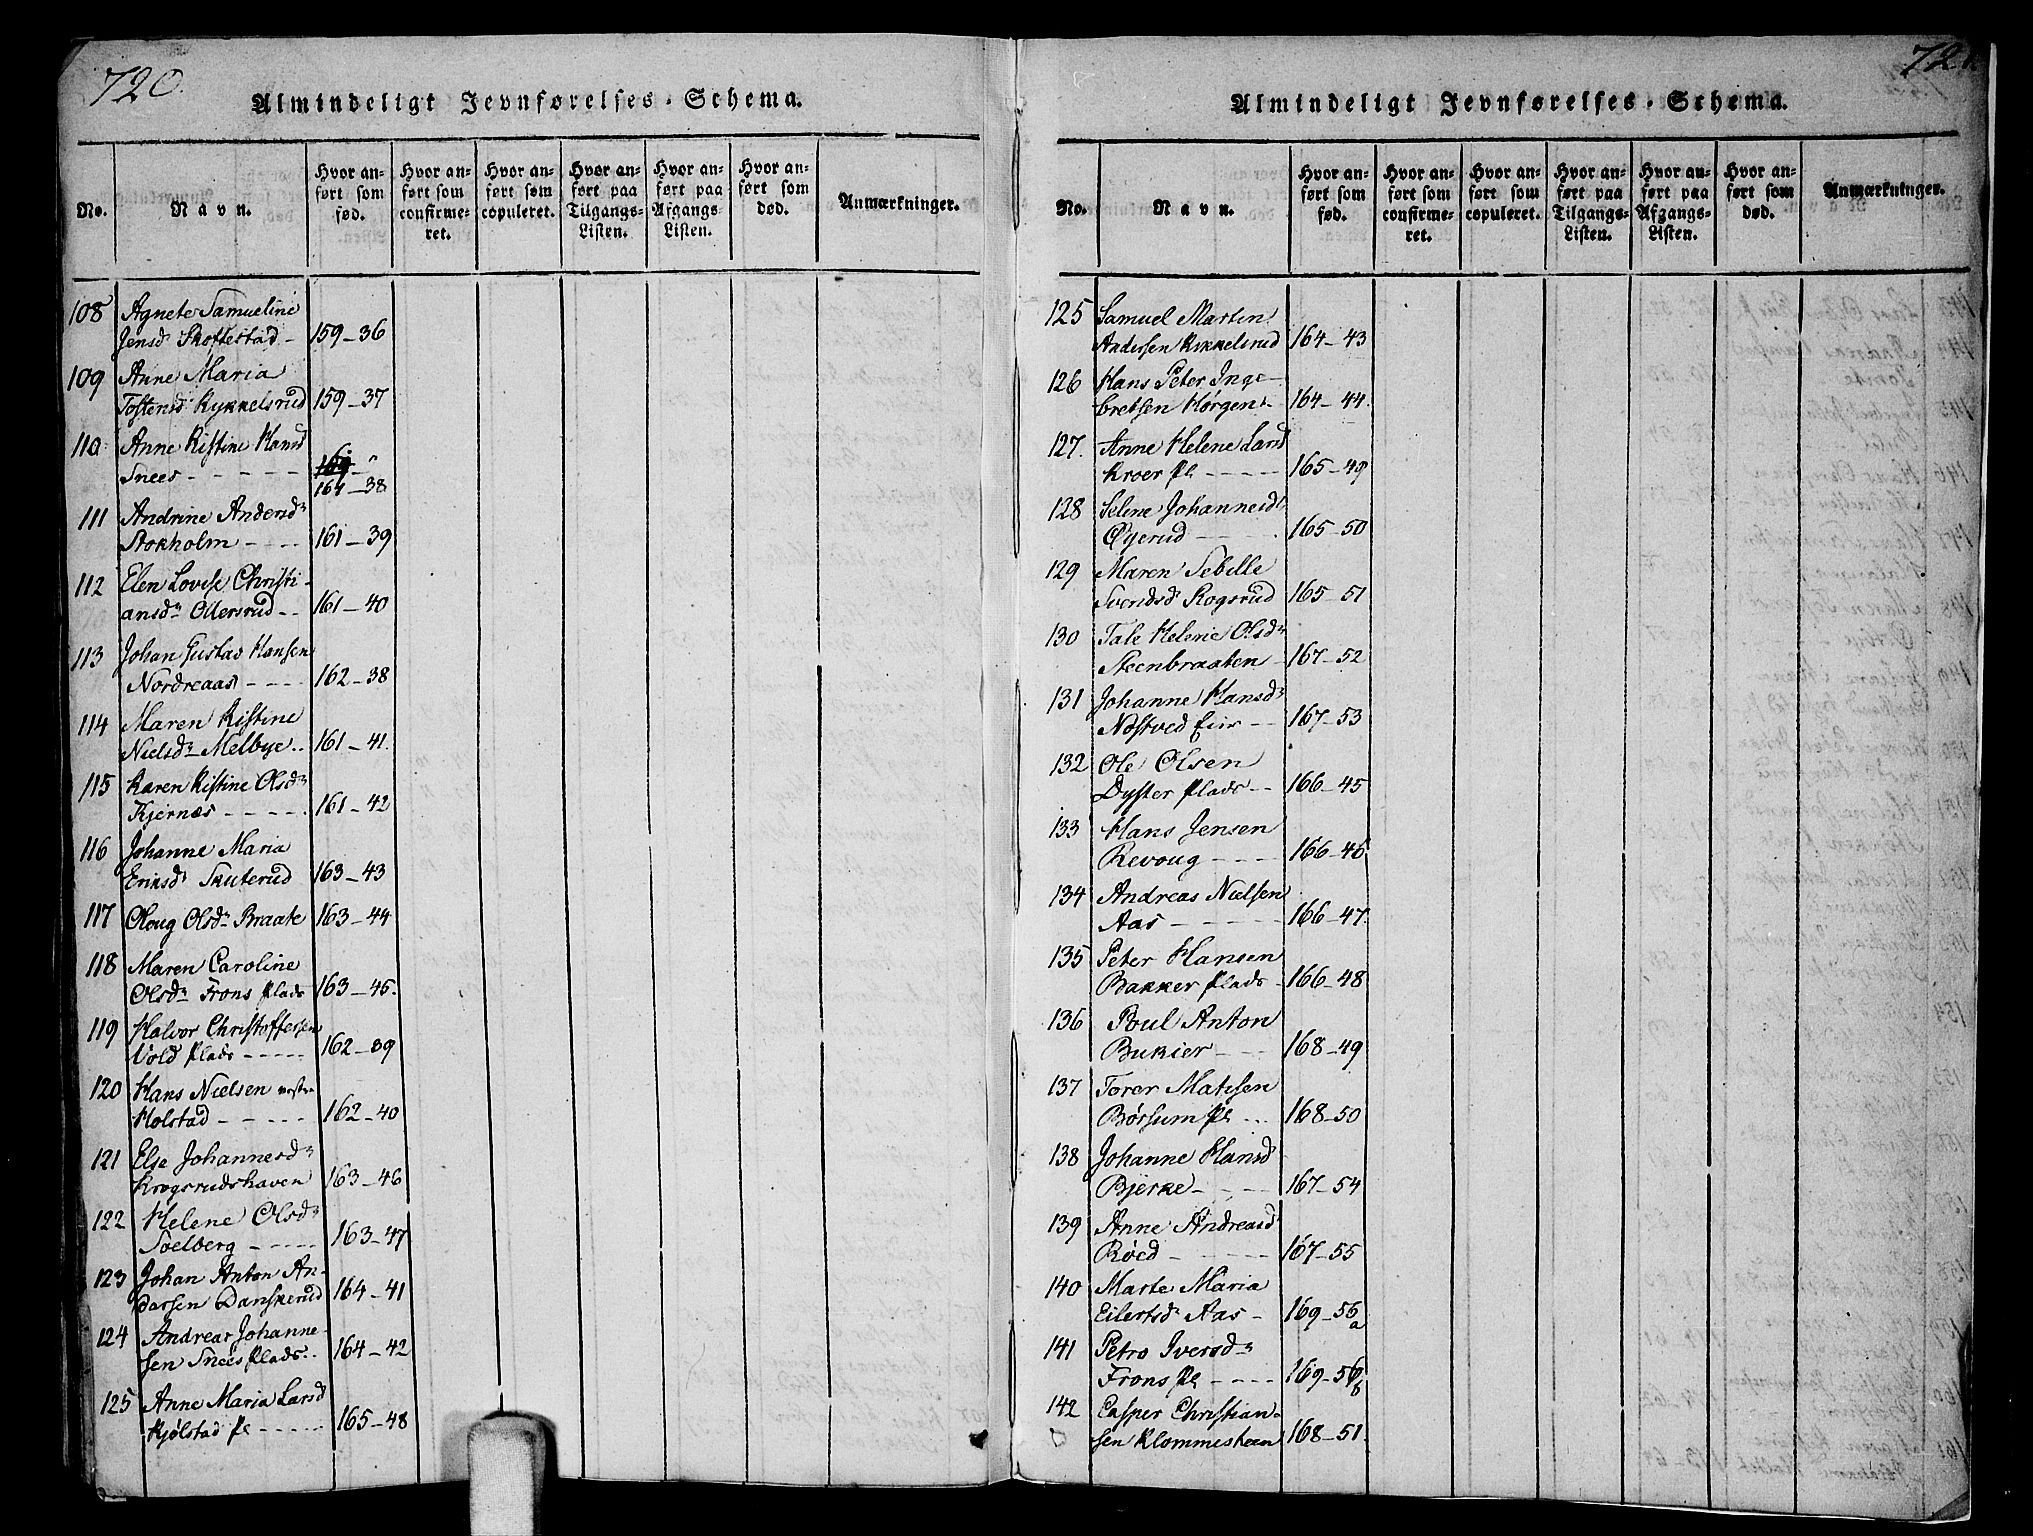 720.
Almindeligt Jevnførelses-Schema.
No.
Navn.
Hvor anført som fød.
Hvor anført som confirmeret.
Hvor anført som copuleret.
Hvor anført paa Tilgangs-Listen.
Hvor anført paa Afgangs-Listen.
Hvor anført som død.
Anmærkninger.
108 Agnete Samueline
Jensd Skoftestad - 159-36
109 Anne Maria
Tostensd Kykkelsrud 159-37
110 Anne Kistine Hansd
Snees - - - - 161-38
111 Andrine Andersd
Stokholm - - - 161-39
112 Elen Lovise Christi-
ansd Ollersrud - - 161-40
113 Johan Gustav Hansen
Nordreaas - - - 162-38
114 Maren Kistine
Nielsd Melbye - - 161-41.
115 Karen Kistine Olsd
Kjernæs - - - - 161-42
116 Johanne Maria
Eriksd Skuterud 163-43
117 Oloug Olsd Braate 163-44
118 Maren Caroline
Olsd Frons Plads 163-45.
119 Halvor Christoffersen
Vold Plads - - - 162-39
120 Hans Nielsen vestre
Holstad - - - - 162-40
121 Else Johannesd
Krogsrudshaven 163-46
122 Helene Olsd
Soelberg - - - - 163-47
123 Johan Anton An-
dersen Danskerud 164-41
124 Andreas Johanne-
sen Snees Plads - - 164-42
125 Anne Maria Larsd
Kjølstad Pl - - - - 165-48
721
Almindeligt Jevnførelses-Schema.
No.
Navn.
Hvor anført som fød.
Hvor anført som confirmeret.
Hvor anført som copuleret.
Hvor anført paa Tilgangs-Listen.
Hvor anført paa Afgangs-Listen.
Hvor anført som død.
Anmærkninger.
125 Samuel Martin
Andersen Kykkelsrud 164-43
126 Hans Peter Inge-
bretsen Hørgen - 164-44.
127. Anne Helene Larsd
Kroer Pl - - - - 165-49
128 Selene Johannesd
Øyerud - - - - 165-50
129 Maren Sebille
Svendsd Rogsrud 165-51
130 Tale Helene Olsd
Steenbraaten - 167-52
131 Johanne Hansd
Nøstved Eier - - 167-53
132 Ole Olsen
Dyster Plads - - 166-45
133 Hans Jensen
Revoug - - - - 166-46
134 Andreas Nielsen
Aas - - - - - 166-47.
135 Peter Hansen
Bakker Plads - 166-48
136 Poul Anton
Bukier - - - 168-49
137 Torer Matisen
Børsum Pl - - - 168-50
138 Johanne Hansd
Bjerke - - - - 167-54
139 Anne Andreasd
Røed - - - - - 167-55
140 Marte Maria
Eilertsd Aas - 169-56 a
141 Petro Iversd
Frons Pl - - - - 169-56 b
142 Casper Christian-
sen Klommesteen 168-51.